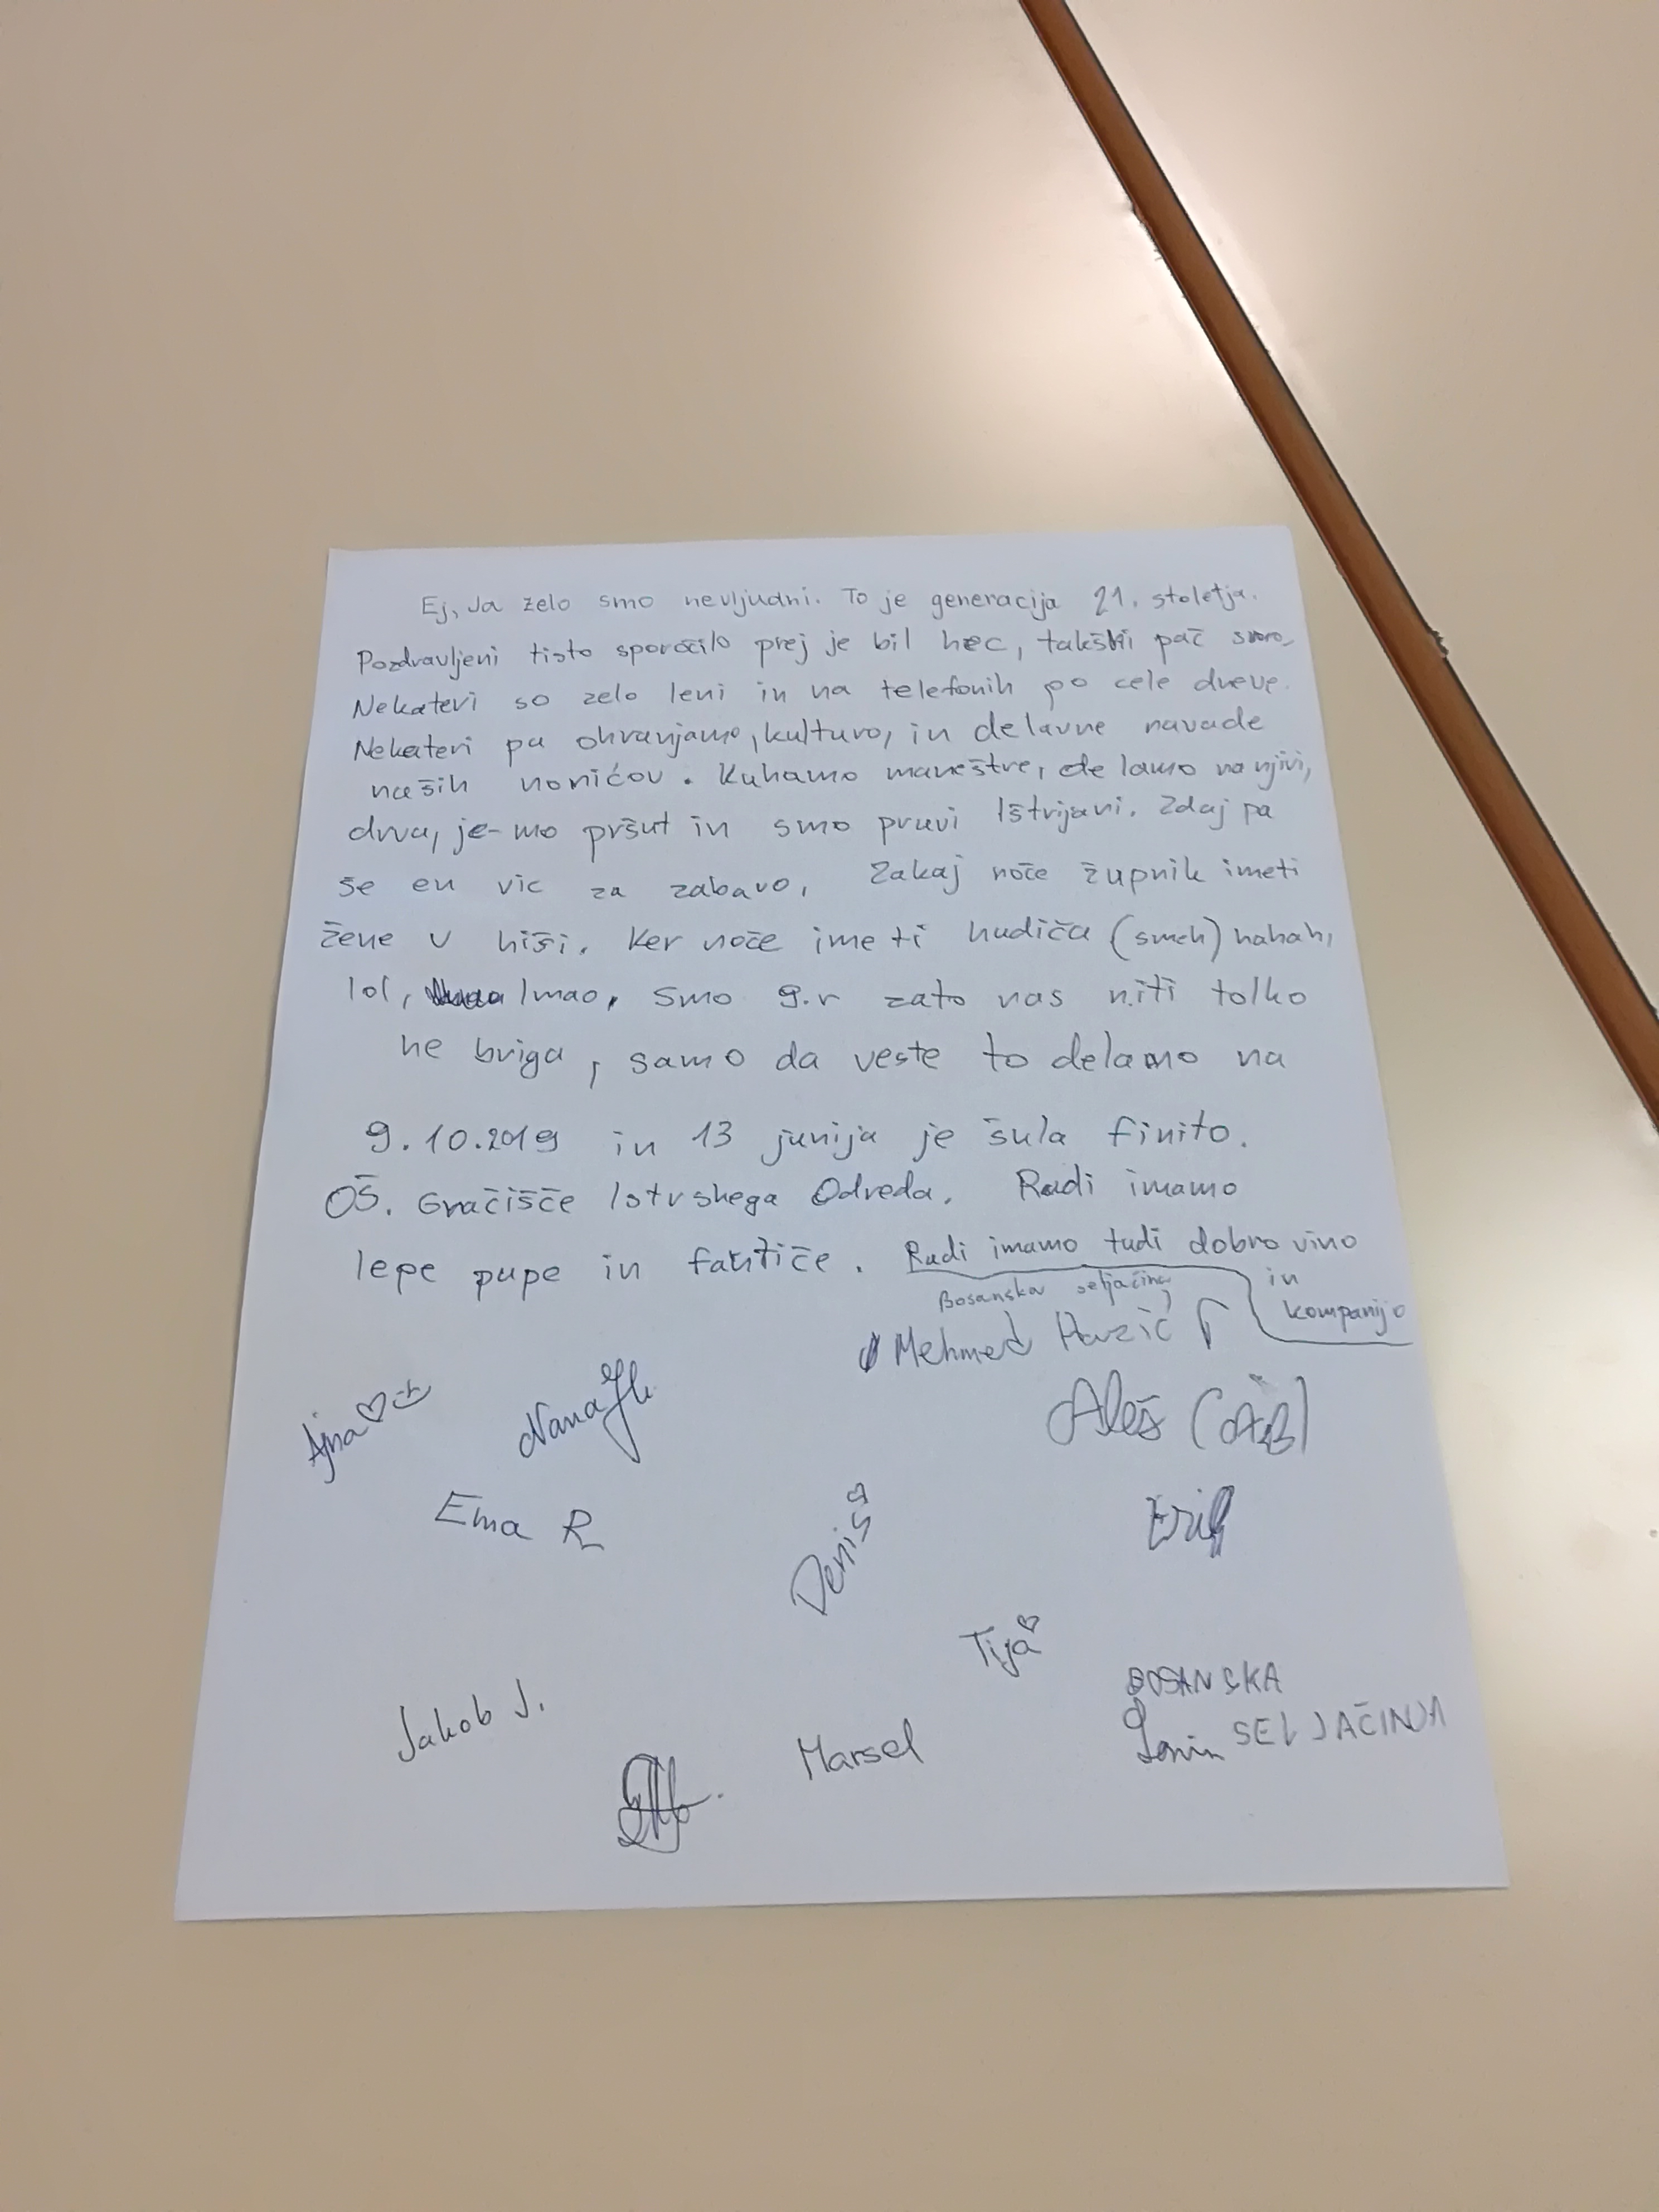 Ej, Ja zelo smo nevljudni. To je generacija 21. stoletja.
Pozdravljeni tisto sporočilo prej je bil hec, takšni pač smo.
Nekateri so zelo leni in na telefonih po cele dneve.
Nekateri pa ohranjamo, kulturo, in delavne navade
naših nonićov. Kuhamo maneštre, delamo na njivi,
drva, je-mo pršut in smo pravi Ištrijani. Zdaj pa
še en vic za zabavo, Zakaj noče župnik imeti
žene v hiši. Ker noče imeti hudiča (smeh) hahah,
lol, lmao, smo 9.r zato nas niti tolko
ne briga, samo da veste to delamo na
9.10.2019 in 13 junija je šula finito.
OŠ. Gračišče Istrskega Odreda. Radi imamo
lepe pupe in fantiče. Radi imamo tudi dobro vino
in
kompanijo
Bosanska seljačina
Mehmed
Ajna
Nana
Aleš
Ema R
Denis
Erik
Tija
Jakob J.
Marsel
BOSANSKA
SELJAČINA